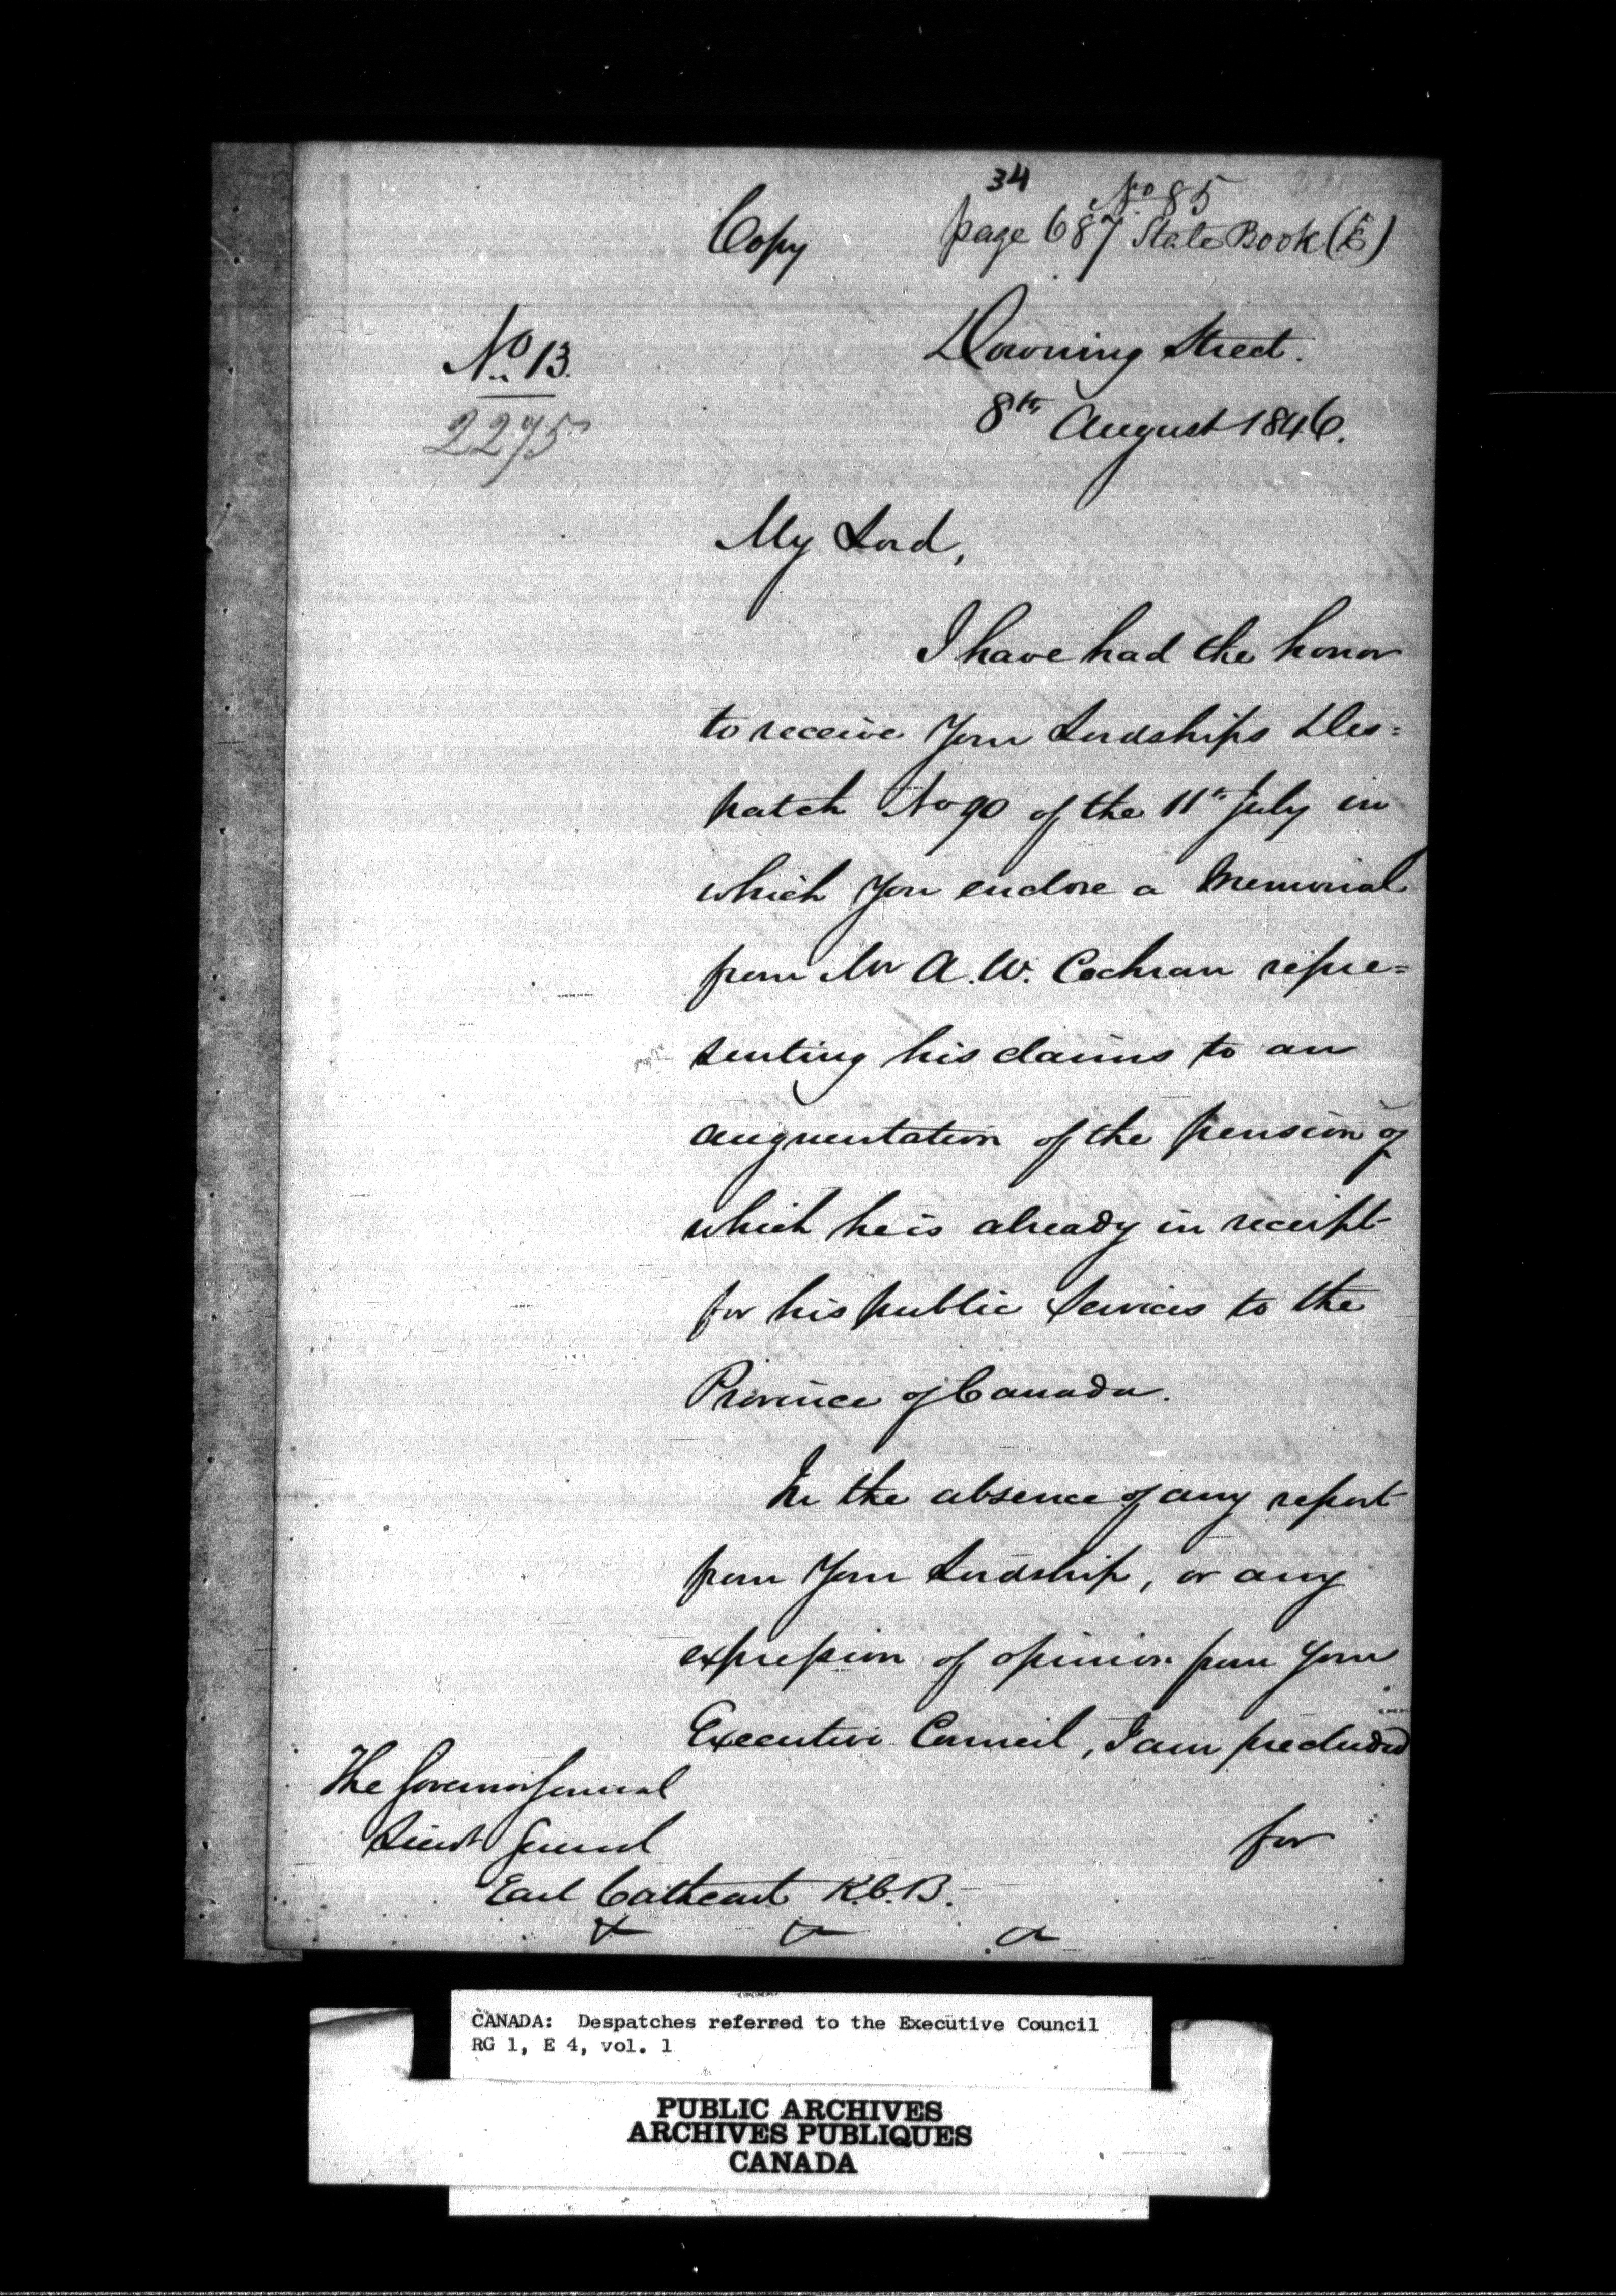 34
No 85
Copy
page 687 State Book (E)
No 13.
2275
Downing Street.
8th August 1846.
My Lord,
I have had the honor
to receive Your Lordships Des=
patch No 90 of the 11th July in
which You enclose a Memorial
from Mr A. W. Cochran repre=
senting his claims to an
augmentation of the pension of
which he is already in receipt
for his public Services to the
Province of Canada.
In the absence of any report
from Your Lordship, or any
expression of opinion from Your
Executive Council, I am precluded
for
The Governor General
Lieut General
Earl Cathcart K.C.B.
& & &
CANADA: Despatches referred to the Executive Council
RG 1, E 4, vol. 1
PUBLIC ARCHIVES
ARCHIVES PUBLIQUES
CANADA